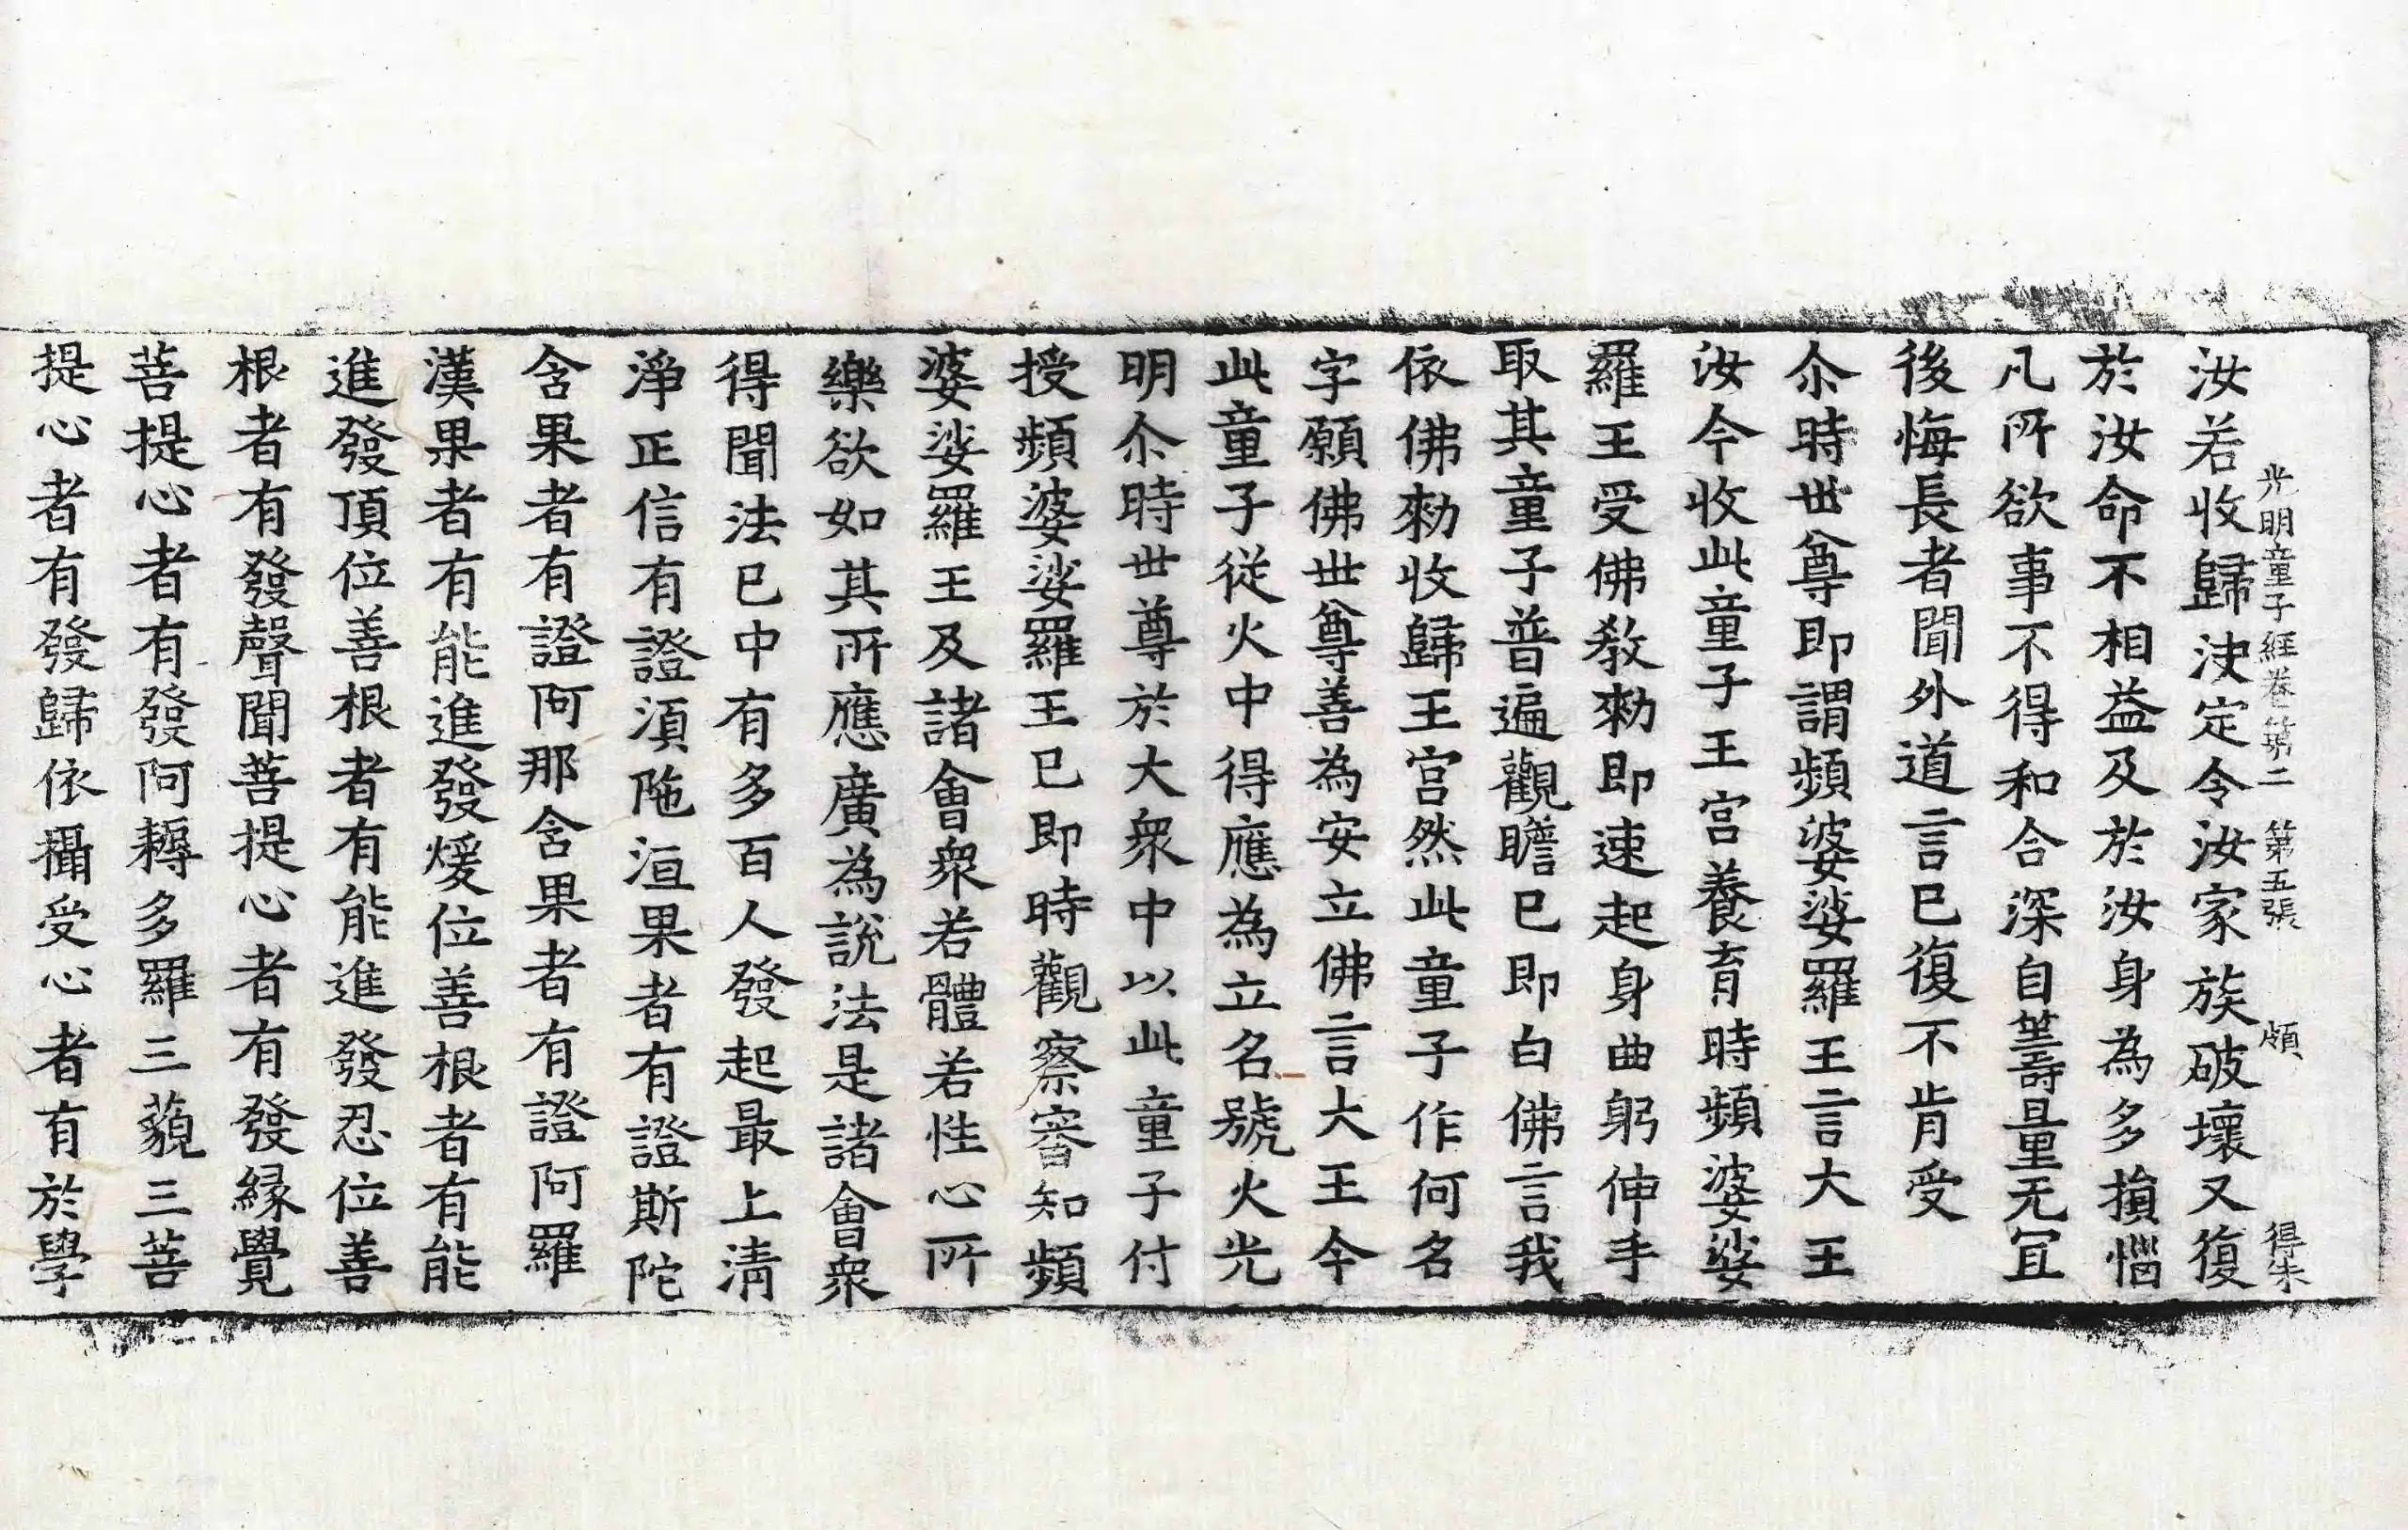 光明童子經卷第二　第五張　頗　得朱
汝若收歸決定令汝家族破壞又復
於汝命不相益及於汝身為多損惱
凡所欲事不得和合深自筭量无冝
後悔長者聞外道言已復不肯受
尒時世尊即謂頻婆娑羅王言大王
汝今收此童子王宮養育時頻婆娑
羅王受佛教勑即速起身曲躬伸手
取其童子普遍觀瞻已即白佛言我
依佛勑收歸王宮然此童子作何名
字願佛世尊善為安立佛言大王今
此童子從火中得應為立名號火光
明尒時世尊於大衆中以此童子付
授頻婆娑羅王已即時觀察審知頻
婆娑羅王及諸會衆若體若性心所
樂欲如其所應廣為說法是諸會衆
得聞法已中有多百人發起最上清
淨正信有證湏陁洹果者有證斯陀
含果者有證阿那含果者有證阿羅
漢果者有能進發煖位善根者有能
進發頂位善根者有能進發忍位善
根者有發聲聞菩提心者有發緣覺
菩提心者有發阿耨多羅三藐三菩
提心者有發歸依攝受心者有於學